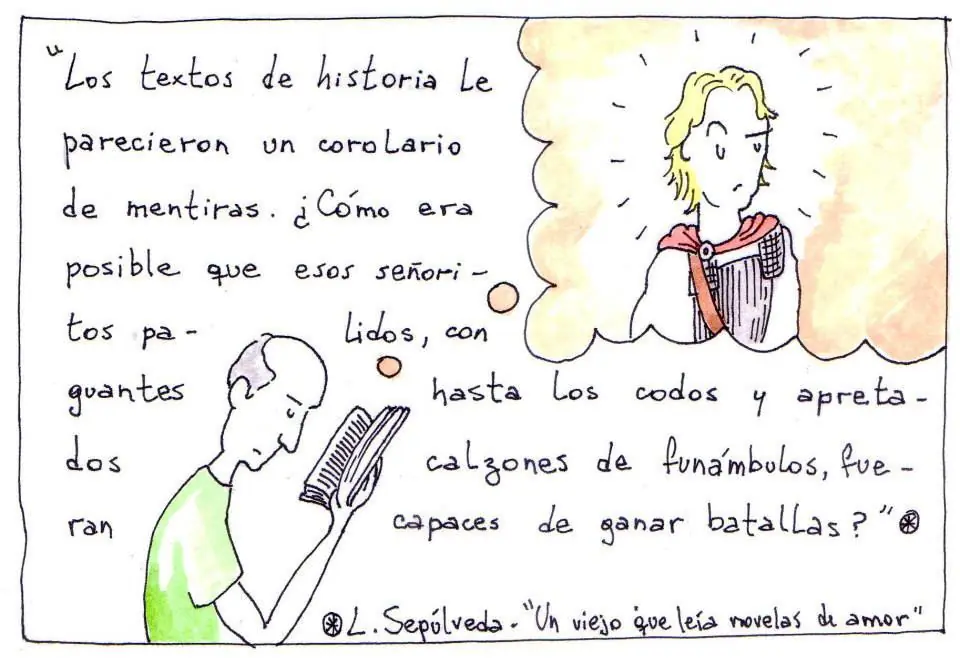 "Los textos de historia le
parecieron un corolario
de mentiras. ¿Cómo era
posible que esos señori-
tos pa- lidos, con
guantes hasta los codos y apreta-
dos calzones de funámbulos, fue-
ran capaces de ganar batallas?" ⊛
⊛ L. Sepúlveda - "Un viejo que leía novelas de amor"